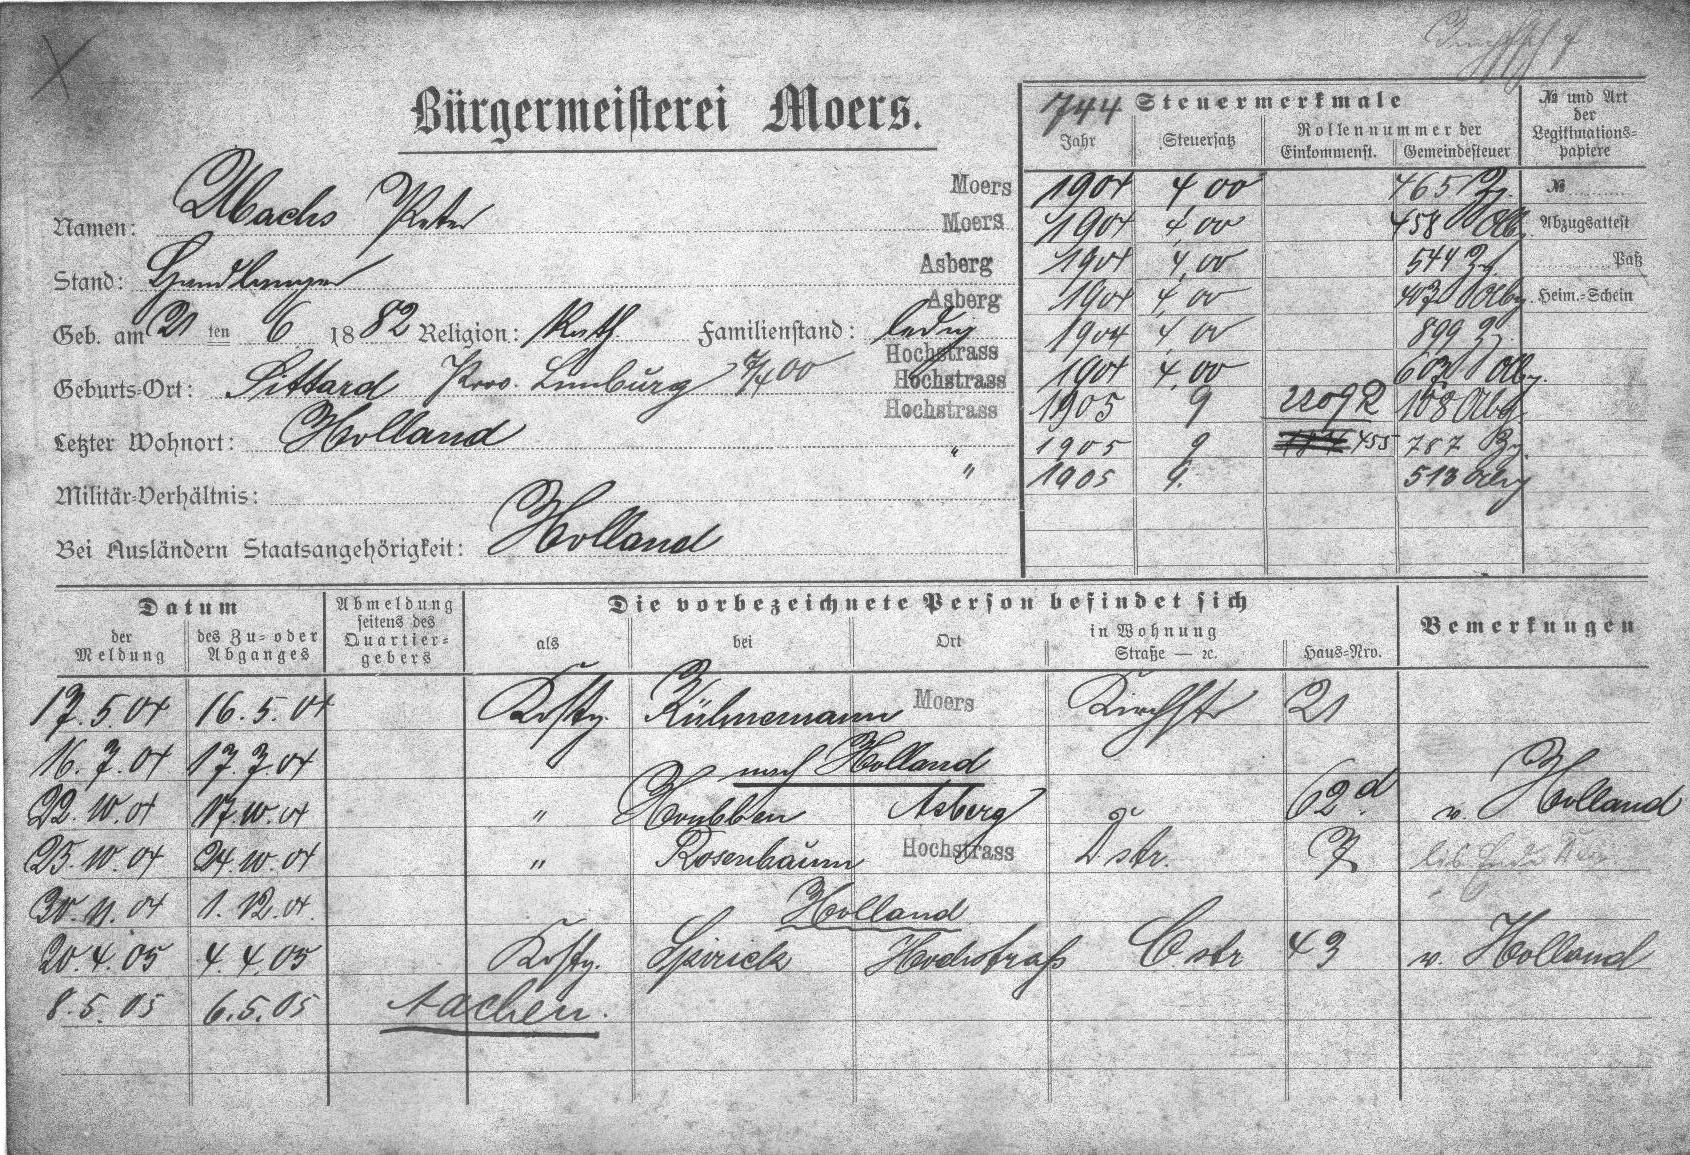 Bürgermeisterei Moers.
Namen: Ubachs Peter
Stand: Handlanger
Geb. am 21 ten 6 1882 Religion: Kath. Familienstand: ledig
Geburts-Ort: Sittard Prov. Limburg
Letzter Wohnort: Holland
Militär-Verhältnis:
Bei Ausländern Staatsangehörigkeit: Holland
Moers
Moers
Asberg
Asberg
Hochstrass
Hochstrass
Hochstrass
"
"
744 Steuermerkmale
Jahr Steuersatz Rollennummer der Einkommenst. Gemeindesteuer
№ und Art der Legitimations-papiere
1904 4,00 465 Zg.
1904 4,00 458 Abg.
1904 4,00 544 Zg.
1904 4,00 407 Abg.
1904 4,00 899 Zg.
1904 4,00 607 Abg.
1905 9 158 Abg.
1905 9 455 787 Zg.
1905 9. 513 Abg
№
Abzugsattest
Paß
Heim.-Schein
Datum
der Meldung
des Zu- oder Abganges
Abmeldung seitens des Quartier-gebers
Die vorbezeichnete Person befindet sich
als bei Ort in Wohnung Straße — ꝛc. Haus-Nro.
Bemerkungen
17.5.04 16.5.04 Kostg. Külmemann Moers Kirchstr 21
16.7.04 17.7.04 nach Holland
22.10.04 17.10.04 " Houbben Asberg 62d v. Holland
25.10.04 24.10.04 " Rosenbaum Hochstrass D str. 7
30.11.04 1.12.04. Holland
20.4.05 4.4.05 Kostg. Spirick Hochstraß C. str 43 v. Holland
8.5.05 6.5.05 Aachen.